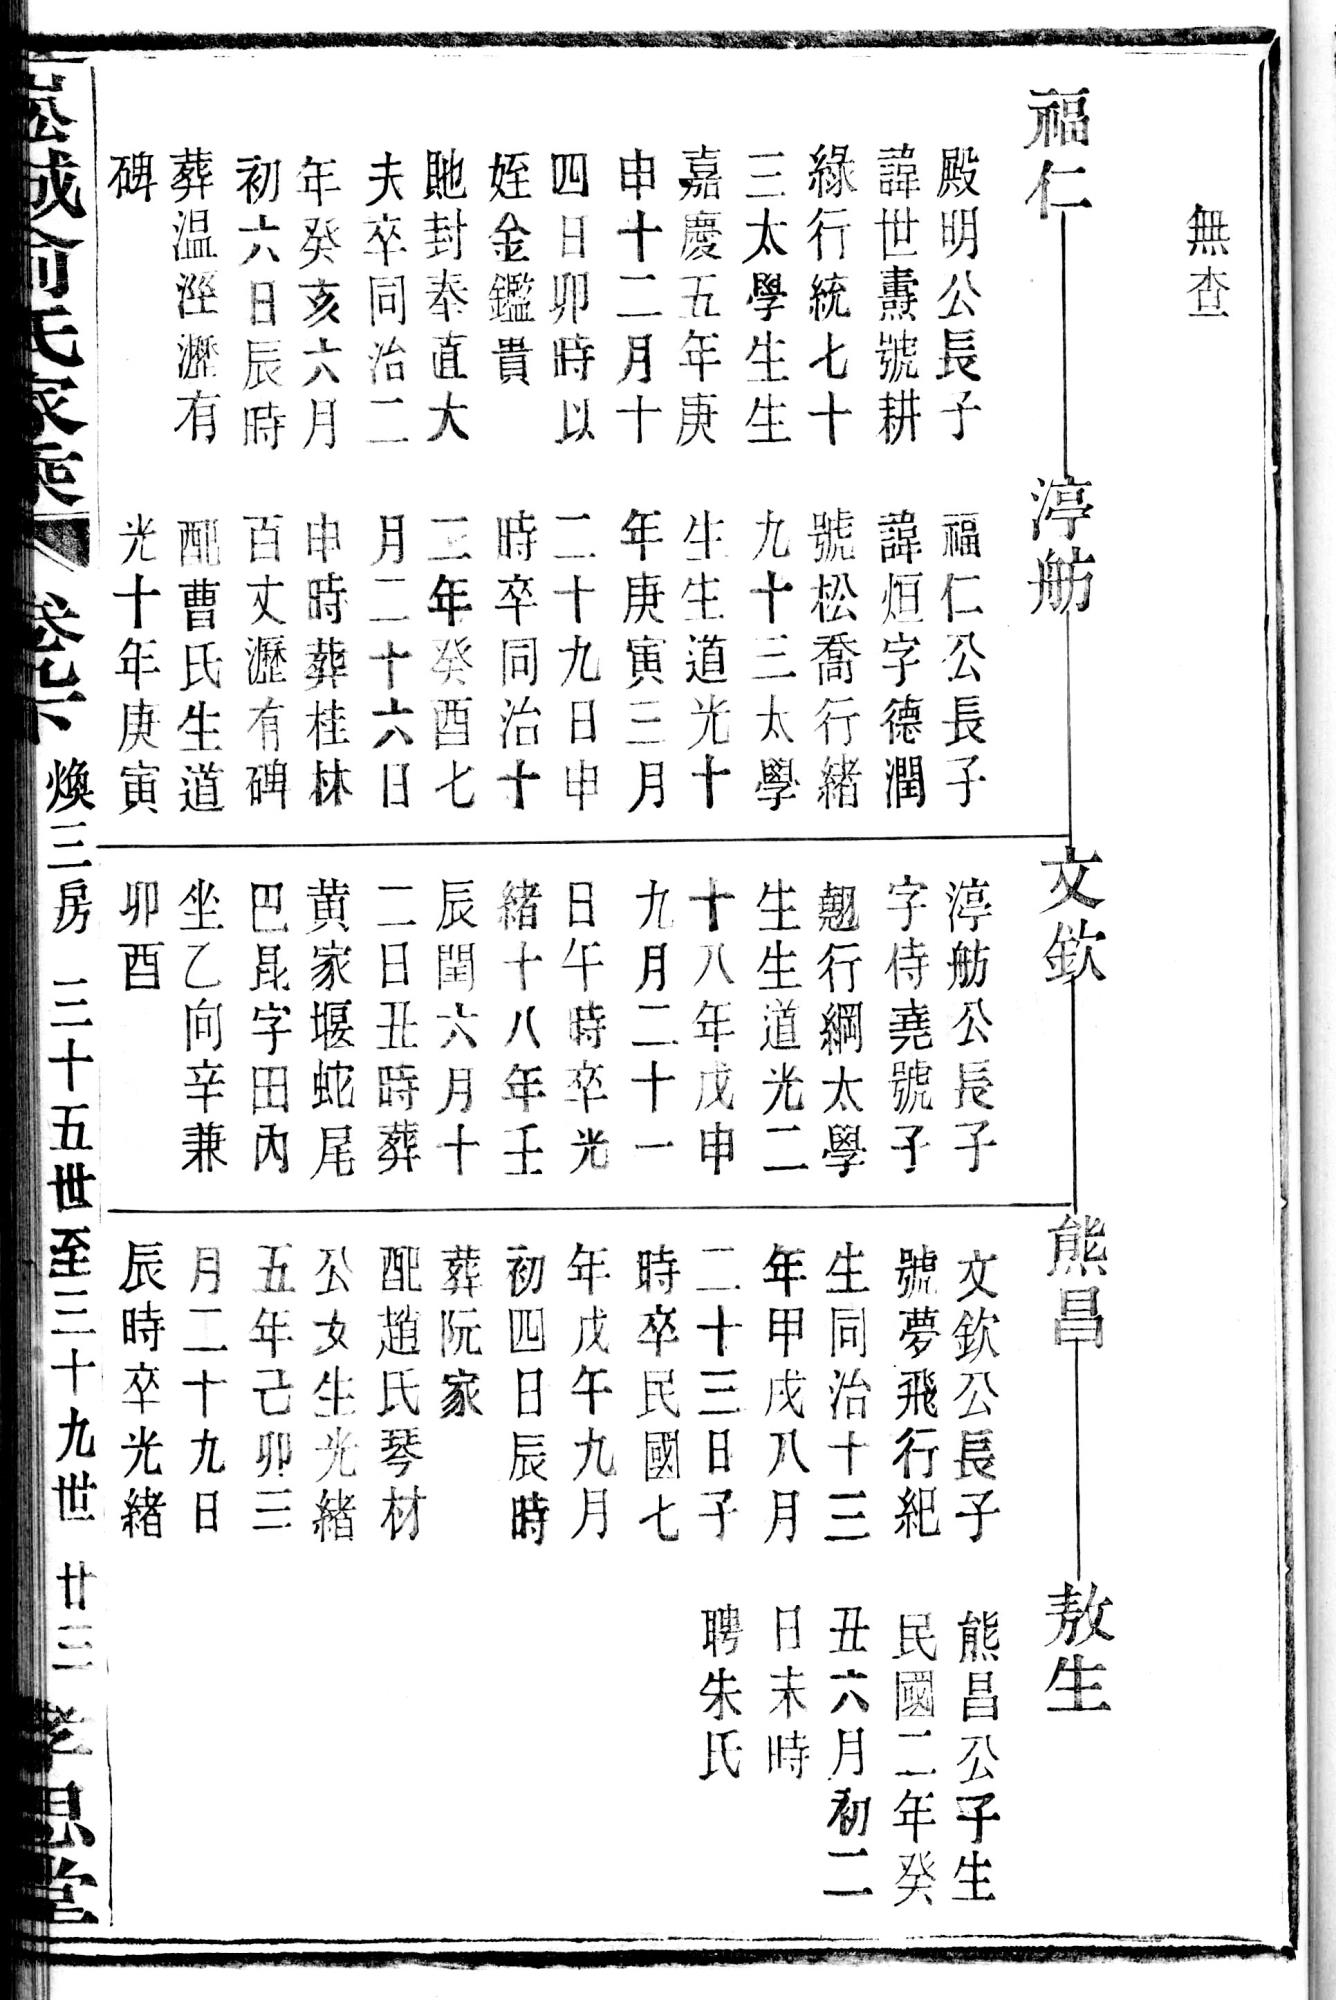 無查
福仁
殿明公長子
諱世燾號耕
綠行統七十
三太學生生
嘉慶五年庚
申十二月十
四日卯時以
姪金鑑貴
貤封奉直大
夫卒同治二
年癸亥六月
初六日辰時
葬温滛瀝有
碑
渟舫
福仁公長子
諱烜字德潤
號松喬行緒
九十三太學
生生道光十
年庚寅三月
二十九日申
時卒同治十
二年癸酉七
月二十六日
申時葬桂林
百丈瀝有碑
配曹氏生道
光十年庚寅
文欽
渟舫公長子
字侍堯號子
翹行綱太學
生生道光二
十八年戊申
九月二十一
日午時卒光
緒十八年壬
辰閏六月十
二日丑時葬
黄家堰蛇尾
巴昆字田內
坐乙向辛兼
卯酉
熊昌
文欽公長子
號夢飛行紀
生同治十三
年甲戌八月
二十三日子
時卒民國七
年戊午九月
初四日辰時
葬阮家
配趙氏琴材
公女生光緒
五年己卯三
月二十九日
辰時卒光緒
敖生
熊昌公子生
民國二年癸
丑六月初二
日未時
聘朱氏
俞氏家乘 卷九下 煥三房 三十五世至三十九世 廿三 孝思堂